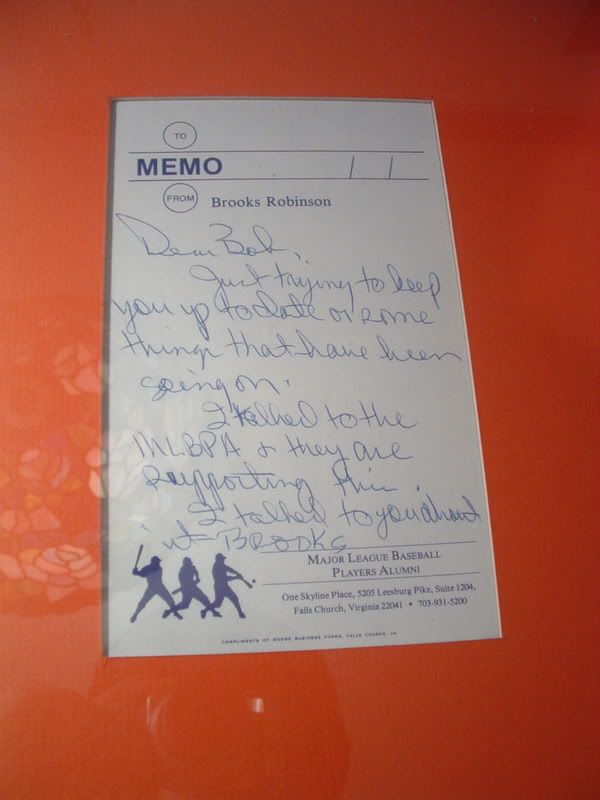 TO
MEMO / /
FROM Brooks Robinson
Dear Bob,
Just trying to keep
you up to date on some
things that have been
going on.
I talked to the
MLBPA & they are
supporting this.
I talked to you about
it BROOKS
MAJOR LEAGUE BASEBALL
PLAYERS ALUMNI
One Skyline Place, 5205 Leesburg Pike, Suite 1204,
Falls Church, Virginia 22041 • 703-931-5200
COMPLIMENTS OF MOORE BUSINESS FORMS, FALLS CHURCH, VA